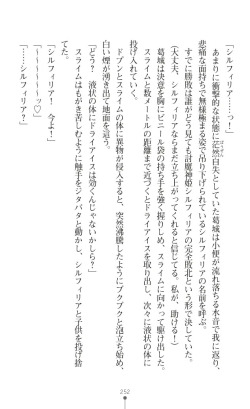 「シルフィリア……っ！」
あまりに衝撃的な状態に茫然自失としていた葛城は小便が流れ落ちる水音で我に返り、
悲痛な面持ちで無様極まる姿で吊り下げられているシルフィリアの名前を呼ぶ。
すでに勝敗は誰がどう見ても討魔神姫シルフィリアの完全敗北という形で決していた。
（大丈夫、シルフィリアならまだ立ち上がってくれると信じてる。私が、助ける！）
葛城は決意を胸にビニール袋の持ち手を強く握りしめ、スライムに向かって駆け出す。
スライムと数メートルの距離まで近づくとドライアイスを取り出し、次々に液状の体に
投げ入れていく。
ドプンとスライムの体に異物が侵入すると、突然沸騰したようにブクブクと泡立ち始め、
白い煙が湧き出て地面を這う。
「どう？　液状の体にドライアイスは効くんじゃないかしら？」
スライムはもがき苦しむように触手をジタバタと動かし、シルフィリアと子供を投げ捨
てた。
「シルフィリア！　今よ！」
「～～～～～ッ♡」
「……シルフィリア？」
252